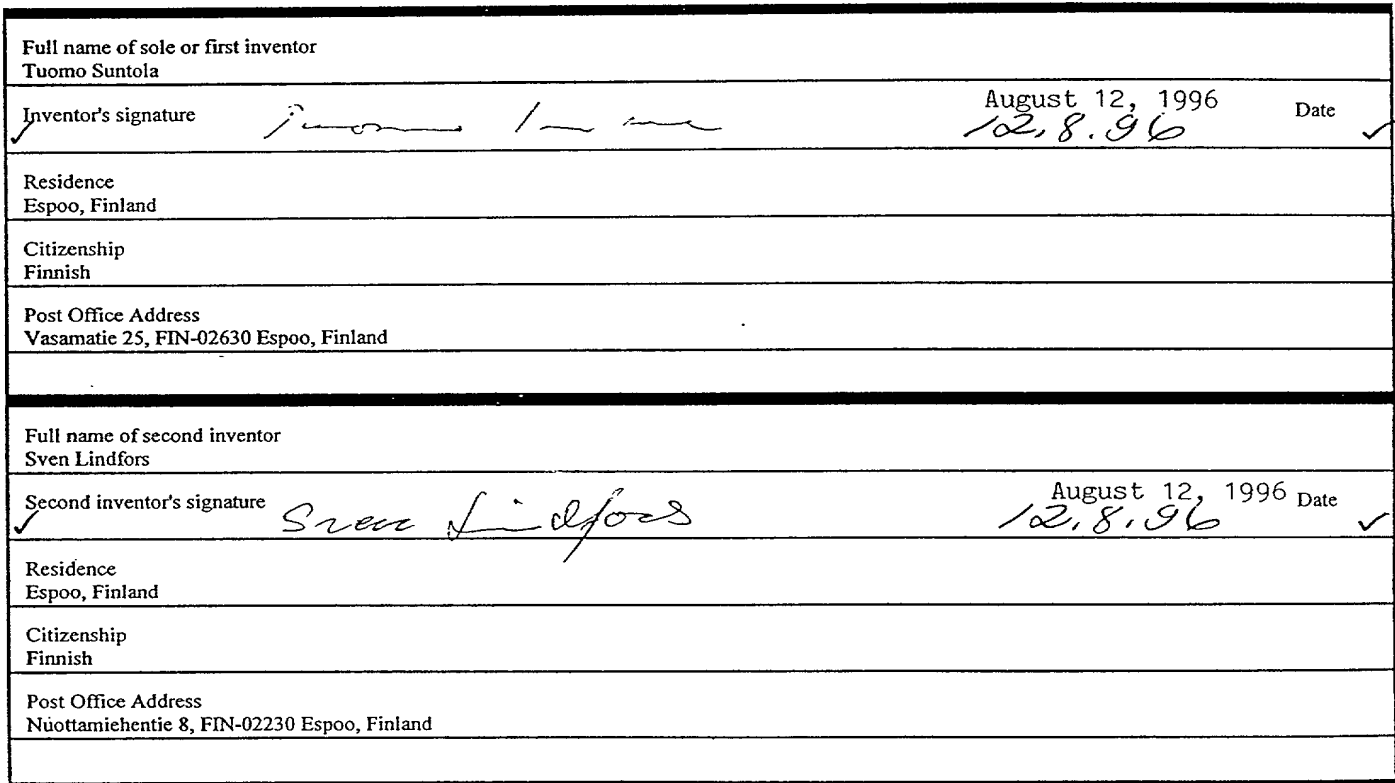 Full name of sole or first inventor
Tuomo Suntola
Inventor's signature August 12, 1996 Date
12.8.96
Residence
Espoo, Finland
Citizenship
Finnish
Post Office Address
Vasamatie 25, FIN-02630 Espoo, Finland
Full name of second inventor
Sven Lindfors
Second inventor's signature Sven Lindfors August 12, 1996 Date
12.8.96
Residence
Espoo, Finland
Citizenship
Finnish
Post Office Address
Nuottamiehentie 8, FIN-02230 Espoo, Finland